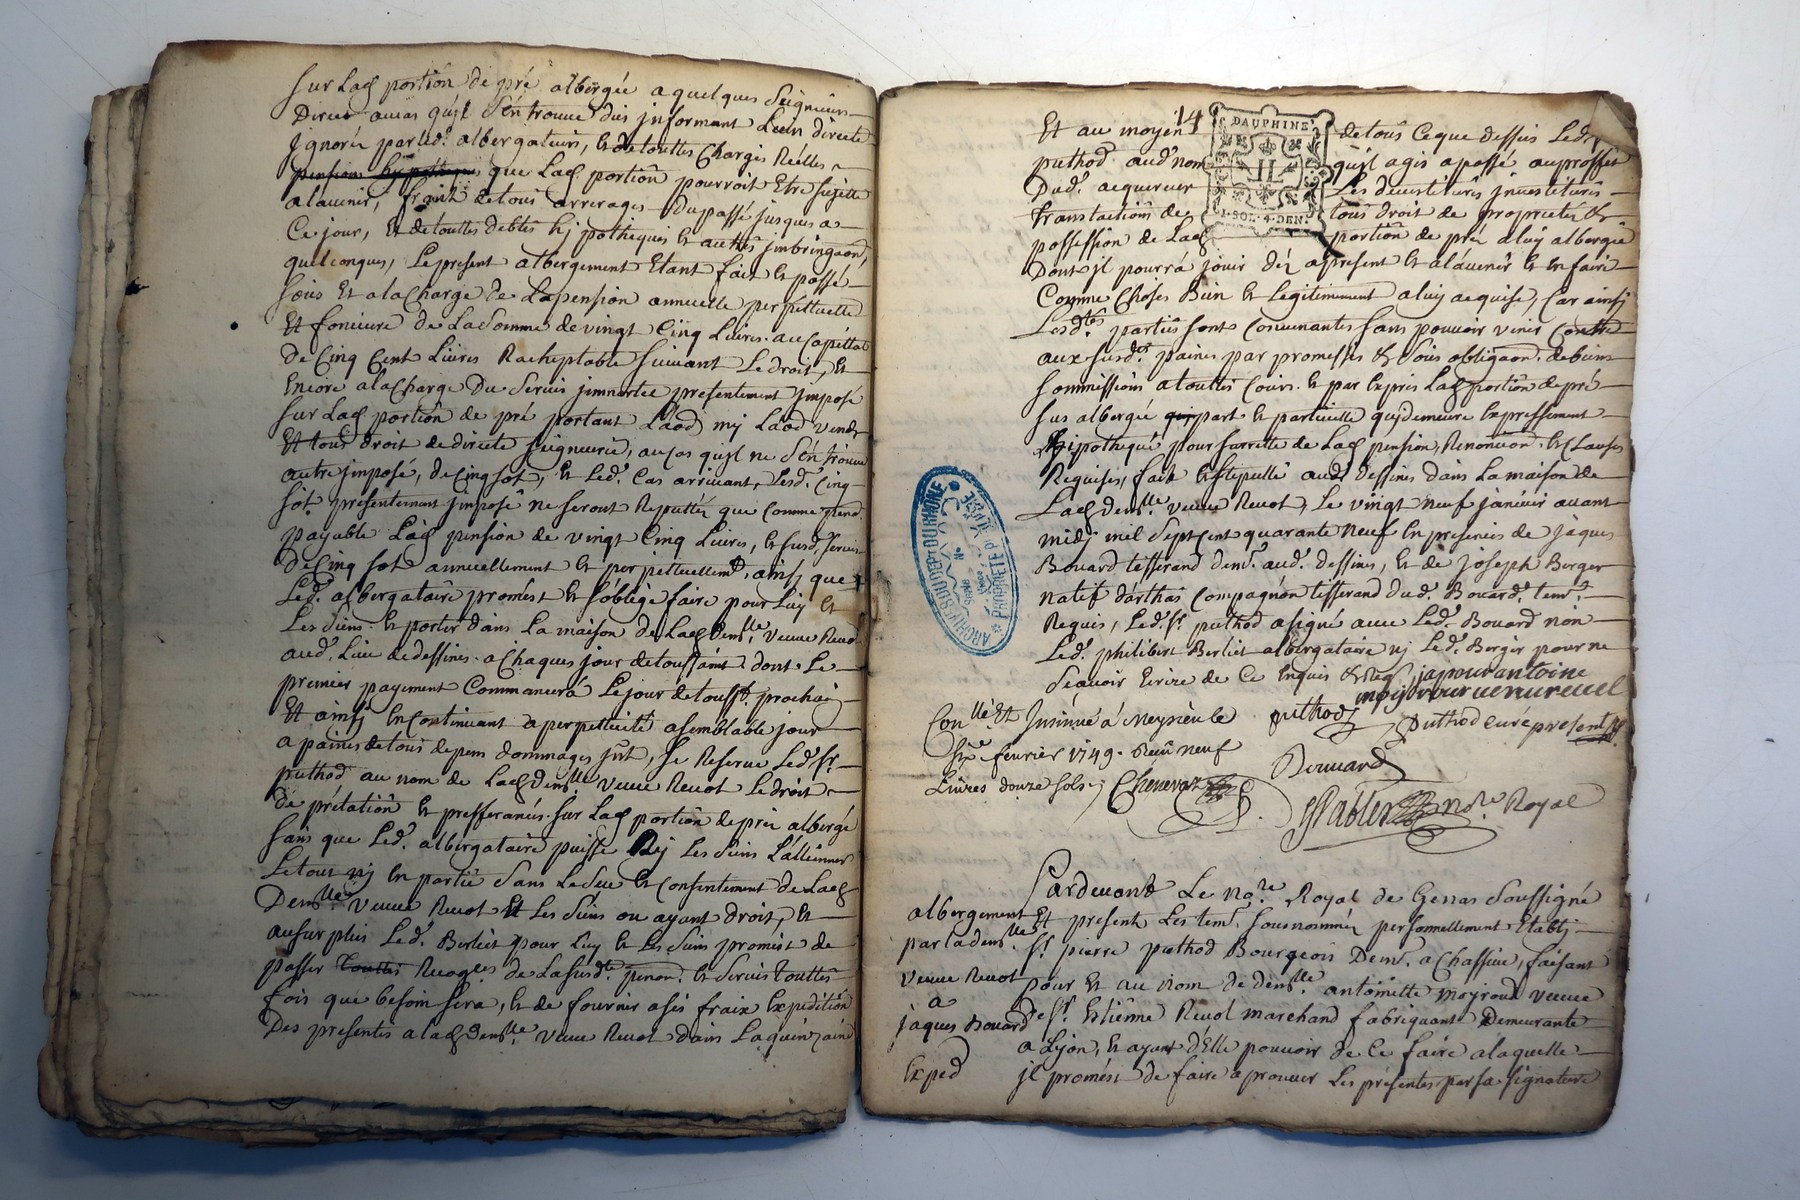 sur lad portion de pré albergée a quelques seigneurs
Directs au cas qu'jl s'en trouve du's jnformant leur directe
jgnorée par led. albergateur, et de touttes charges réélles
pension hypotheques que lad portion pourroit Etre sujette
alavenir, franche de tous arrerages du passé jusques a
Ce jour, Et de touttes debtes hjpothéques et autres
quelconques, Le present albergement Etant fait et passé
sous Et a la charge de la pension annuelle perpetuelle
Et fonciere de la somme de vingt Cinq Livres au Capittal
de Cinq Cent Livres Racheptable suivant Le droit, Et
Encore a la charge du servis presentement jmposé
sur lad portion de pré portant Laod mj Laod vende
Et tout droit de directe seigneurie, au cas qu'jl ne s'en trouve
autre jmposé, de Cinq sols, et Led. Cas arrivant, Lesd. Cinq
sols présentement jmposé ne seront Reputtés que Comme
payable Lad pension de vingt Cinq Livres, et susd. servis
de Cinq sols annuellement Et perpettuellemt, ainsj que
Led. albergataire promést et s'oblige faire pour Luy Et
Les siens et porter dans La maison de Lad demlle veuve Revol
aud. Lieu de dessines a Chaques jour de toussaint dont Le
premier payement Commancera Le jour de tousst. prochain
Et ainsj En continuant a perpettuité a semblable jour
a paines de tous depens dommages jnt, se Reserve Led. sr.
puthod au nom de Lad demlle veuve Revol Le droit
de prélation et prefferances sur Lad portion de pré albergé
sans que Led. albergataire puisse Nj Les siens l'alliener
Le tout nj En partie sans Le sceu et Consentement de Lad
Demlle veuve Revol Et Les siens ou ayant droit, Et
au surplus Led. Berliet pour Luy et Les siens promést de
passer touttes Recogces de La susdte pension et servis touttes
fois que besoin sera, et de fournir a ses fraix Expedition
Des presentes a lad demlle veuve Revol dans La quinzaine
14
DAUPHINE
1·SOL·4·DEN.
Et au moyen de tous Ce que dessus Led. sr
puthod aud. nom qu'jl agis a passé au proffit
Dud. acquereur Les devestitures jnvestitures
translations de tous droit de proprietés et
possession de Lad portion de pré a luy albergée
Dont jl pourra jouir dés a present et alavenir et En faire
Comme Choses Bien et Legitimement a luy acquise, Car ainsj
Lesdtes parties sont Convenantes sans pouvoir venir Contre
aux susdes paines par promesses et sous obligaon de biens
sommissions a touttes Cours et par Exprés Lad portion de pré
sus albergé part et particulle qui demeure Expressement
Hipothequé pour surrette de Lad pension, Renoncaon et Clauses
Requises, fait et stepullé aud. dessines dans La maison de
Lad demlle veuve Revol, Le vingt neuf janvier avant
midj mil sept cent quarante neuf En presences de jaques
Bouard tesserand demt. aud. dessines, et de joseph Berger
natif d'arthas Compagnon tesserand dud. Bouard temt.
Requis, Led. sr. puthod a signé avec Led. Bouard non
Led. philibert Berliet albergataire nj Led. Berger pour ne
sçavoir Ecrire de Ce Enquis et Reqs. japrouv antoine
moyroux veuve revel
puthod puthod curé present
Bouard
Conlle Et Jnsinué a Meysieu le
six février 1749. Reçu neuf
Livres douze sols Chenevaz
Pablen nore Royal
ARCHIVES DU DEPT DU RHONE
PROPRIETE PUBLIQUE
Pardevant Le nore. Royal de Genas soussigné
Et present Les temt. sousnommés personnellement Etablj
sr. pierre puthod Bourgeois Demt. a Chassieu, faisant
pour Et au nom de demlle antoinette moyroud veuve
de sr. Etienne Revol marchand fabriquant Demeurante
a Lyon, et ayant d'Elle pouvoir de Ce faire a laquelle
jl promést de faire aprouver Les présentes par sa signature
albergement
par la demlle
veuve Revol
a
jaques Bouard
Exped